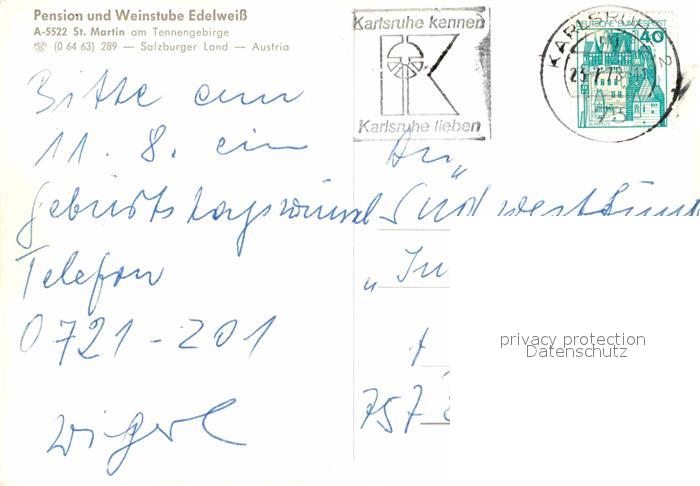 Pension und Weinstube Edelweiß
A-5522 St. Martin am Tennengebirge
☎ (0 64 63) 289 — Salzburger Land — Austria
Karlsruhe kennen
K
Karlsruhe lieben
KARLSRUHE
23.7.78
75
DEUTSCHE BUNDESPOST
40
Bitte am
11. 8. ein
Geburtstagswunsch
Telefon
0721-201
An
Südwestfunk
757
privacy protection
Datenschutz